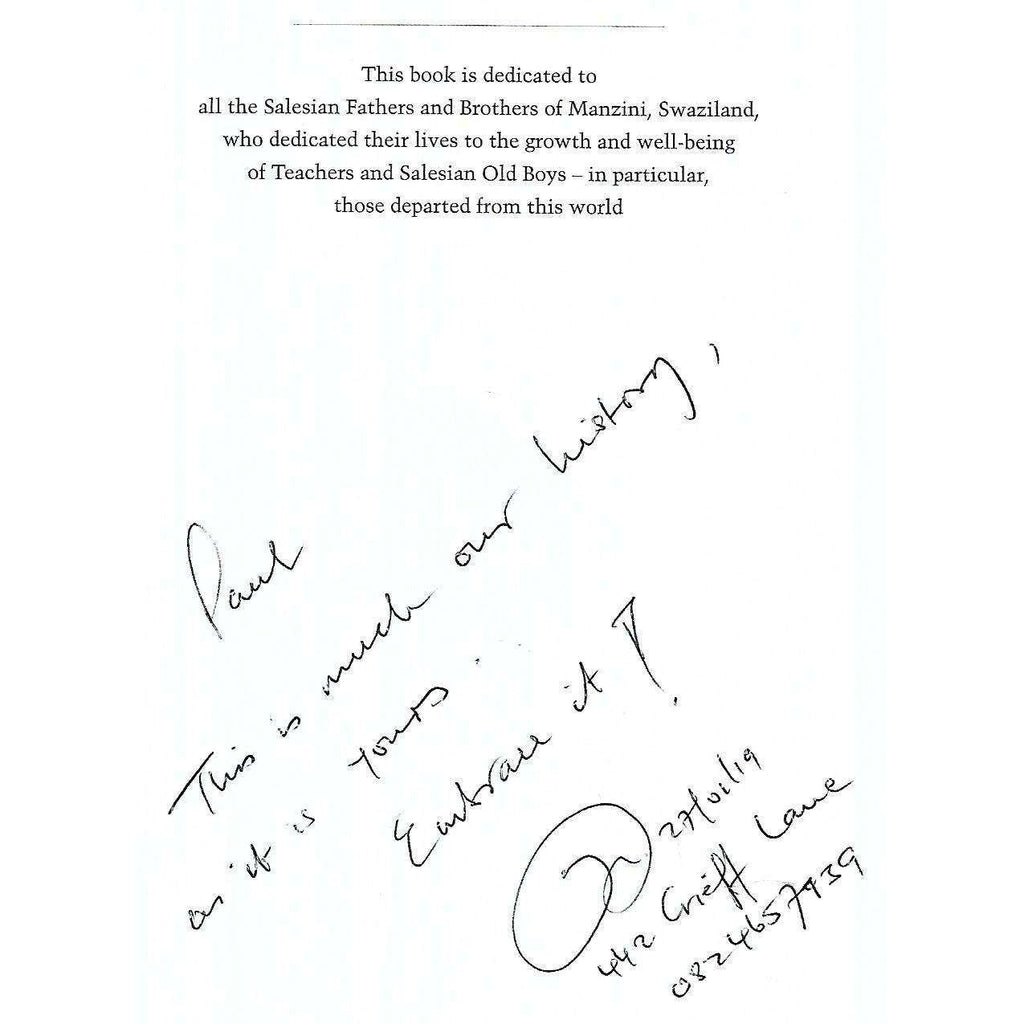 This book is dedicated to
all the Salesian Fathers and Brothers of Manzini, Swaziland,
who dedicated their lives to the growth and well-being
of Teachers and Salesian Old Boys – in particular,
those departed from this world
Paul
This is much our history,
as it is yours.
Embrace it!
27/01/19
442 Crieff Lane
0824657939